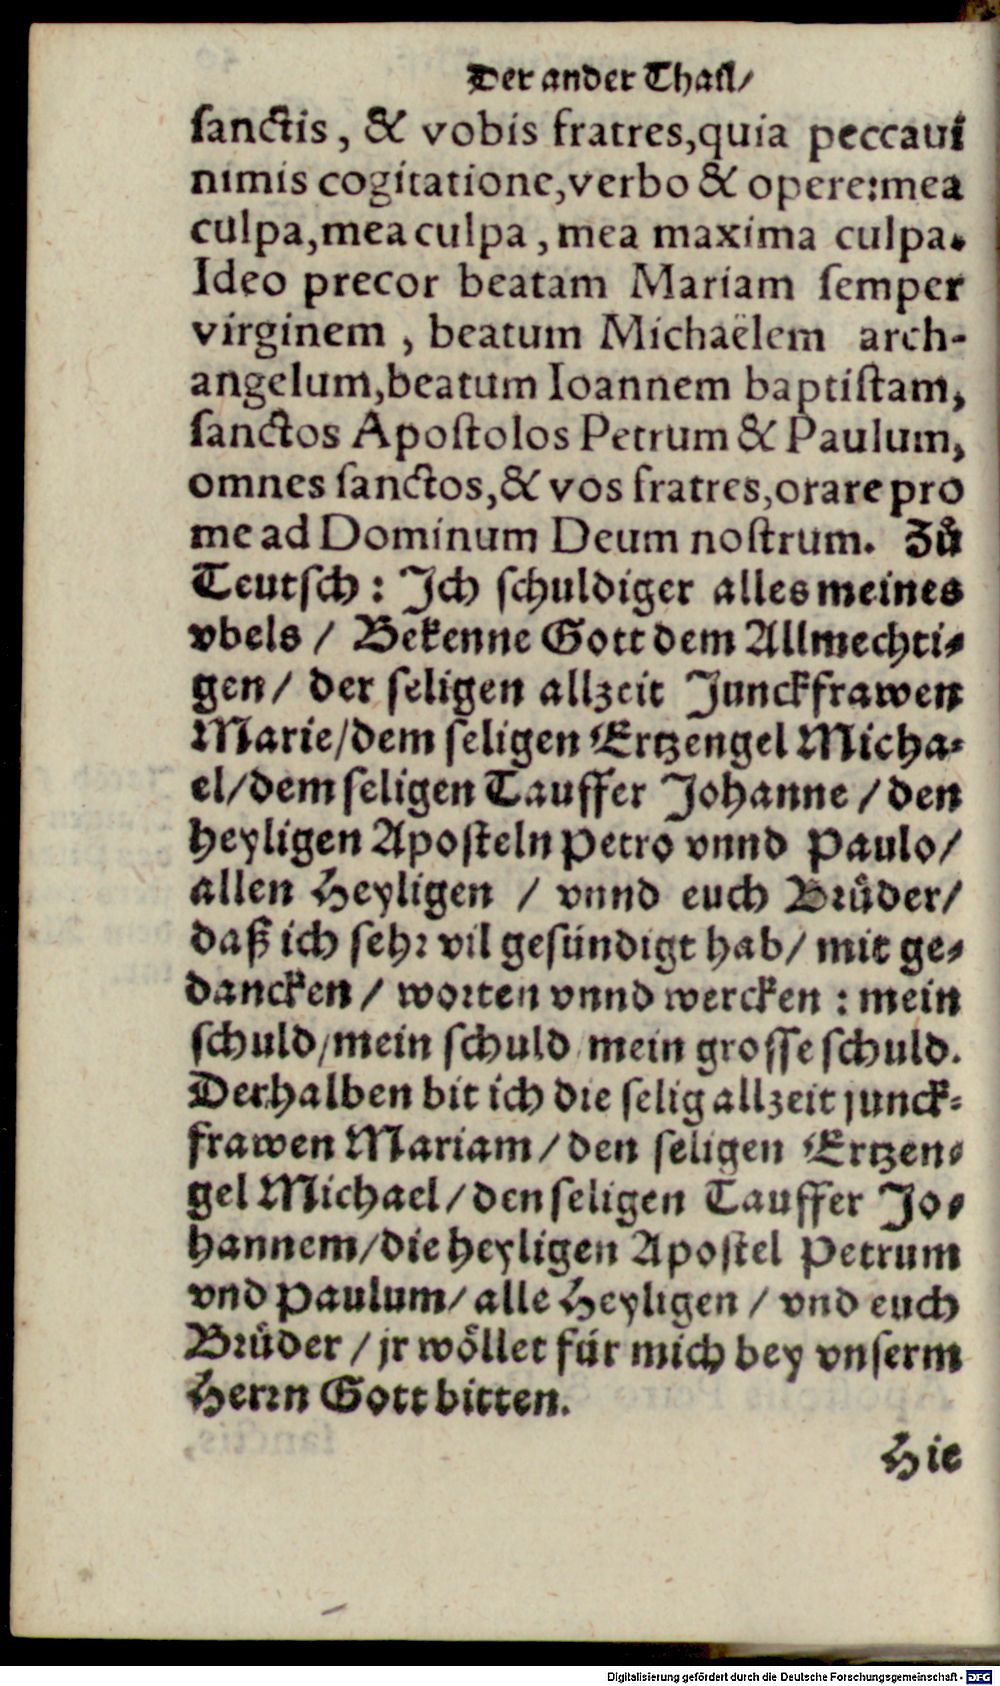 Der ander Thail/
ſanctis, & vobis fratres,quia peccaui
nimis cogitatione,verbo & opere:mea
culpa,mea culpa, mea maxima culpa.
Ideo precor beatam Mariam ſemper
virginem, beatum Michaëlem arch-
angelum,beatum Ioannem baptiſtam,
ſanctos Apoſtolos Petrum & Paulum,
omnes ſanctos,& vos fratres,orare pro
me ad Dominum Deum noſtrum. Zů
Teutſch: Ich ſchuldiger alles meines
vbels / Bekenne Gott dem Allmechti-
gen/ der ſeligen allzeit Junckfrawen
Marie/dem ſeligen Ertzengel Micha-
el/dem ſeligen Tauffer Johanne / den
heyligen Apoſteln Petro vnnd Paulo/
allen Heyligen / vnnd euch Brůder/
daß ich ſehr vil geſündigt hab/ mit ge-
dancken / worten vnnd wercken : mein
ſchuld/mein ſchuld mein groſſe ſchuld.
Derhalben bit ich die ſelig allzeit junck-
frawen Mariam/den ſeligen Ertzen-
gel Michael/den ſeligen Tauffer Jo-
hannem/die heyligen Apoſtel Petrum
vnd Paulum/ alle Heyligen / vnd euch
Brůder / jr wöllet für mich bey vnſerm
Herrn Gott bitten.
Hie
Digitalisierung gefördert durch die Deutsche Forschungsgemeinschaft - DFG